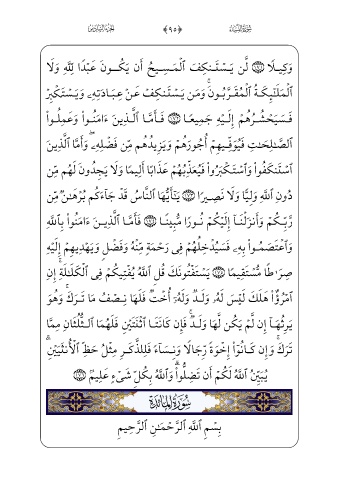 سُورَةُ النِّسَاءِ ﴿٩٥﴾ الجُزْءُ السَّادِسُ
وَكِيلًا ۝١٧١ لَّن يَسْتَنكِفَ ٱلْمَسِيحُ أَن يَكُونَ عَبْدًا لِّلَّهِ وَلَا
ٱلْمَلَٰٓئِكَةُ ٱلْمُقَرَّبُونَ ۚ وَمَن يَسْتَنكِفْ عَنْ عِبَادَتِهِۦ وَيَسْتَكْبِرْ
فَسَيَحْشُرُهُمْ إِلَيْهِ جَمِيعًا ۝١٧٢ فَأَمَّا ٱلَّذِينَ ءَامَنُوا۟ وَعَمِلُوا۟
ٱلصَّٰلِحَٰتِ فَيُوَفِّيهِمْ أُجُورَهُمْ وَيَزِيدُهُم مِّن فَضْلِهِۦ ۖ وَأَمَّا ٱلَّذِينَ
ٱسْتَنكَفُوا۟ وَٱسْتَكْبَرُوا۟ فَيُعَذِّبُهُمْ عَذَابًا أَلِيمًا وَلَا يَجِدُونَ لَهُم مِّن
دُونِ ٱللَّهِ وَلِيًّا وَلَا نَصِيرًا ۝١٧٣ يَٰٓأَيُّهَا ٱلنَّاسُ قَدْ جَآءَكُم بُرْهَٰنٌ مِّن
رَّبِّكُمْ وَأَنزَلْنَآ إِلَيْكُمْ نُورًا مُّبِينًا ۝١٧٤ فَأَمَّا ٱلَّذِينَ ءَامَنُوا۟ بِٱللَّهِ
وَٱعْتَصَمُوا۟ بِهِۦ فَسَيُدْخِلُهُمْ فِى رَحْمَةٍ مِّنْهُ وَفَضْلٍ وَيَهْدِيهِمْ إِلَيْهِ
صِرَٰطًا مُّسْتَقِيمًا ۝١٧٥ يَسْتَفْتُونَكَ قُلِ ٱللَّهُ يُفْتِيكُمْ فِى ٱلْكَلَٰلَةِ ۚ إِنِ
ٱمْرُؤٌا۟ هَلَكَ لَيْسَ لَهُۥ وَلَدٌ وَلَهُۥٓ أُخْتٌ فَلَهَا نِصْفُ مَا تَرَكَ ۚ وَهُوَ
يَرِثُهَآ إِن لَّمْ يَكُن لَّهَا وَلَدٌ ۚ فَإِن كَانَتَا ٱثْنَتَيْنِ فَلَهُمَا ٱلثُّلُثَانِ مِمَّا
تَرَكَ ۚ وَإِن كَانُوٓا۟ إِخْوَةً رِّجَالًا وَنِسَآءً فَلِلذَّكَرِ مِثْلُ حَظِّ ٱلْأُنثَيَيْنِ ۗ
يُبَيِّنُ ٱللَّهُ لَكُمْ أَن تَضِلُّوا۟ ۗ وَٱللَّهُ بِكُلِّ شَىْءٍ عَلِيمٌ ۝١٧٦
سُورَةُ المَائِدَةِ
بِسْمِ ٱللَّهِ ٱلرَّحْمَٰنِ ٱلرَّحِيمِ